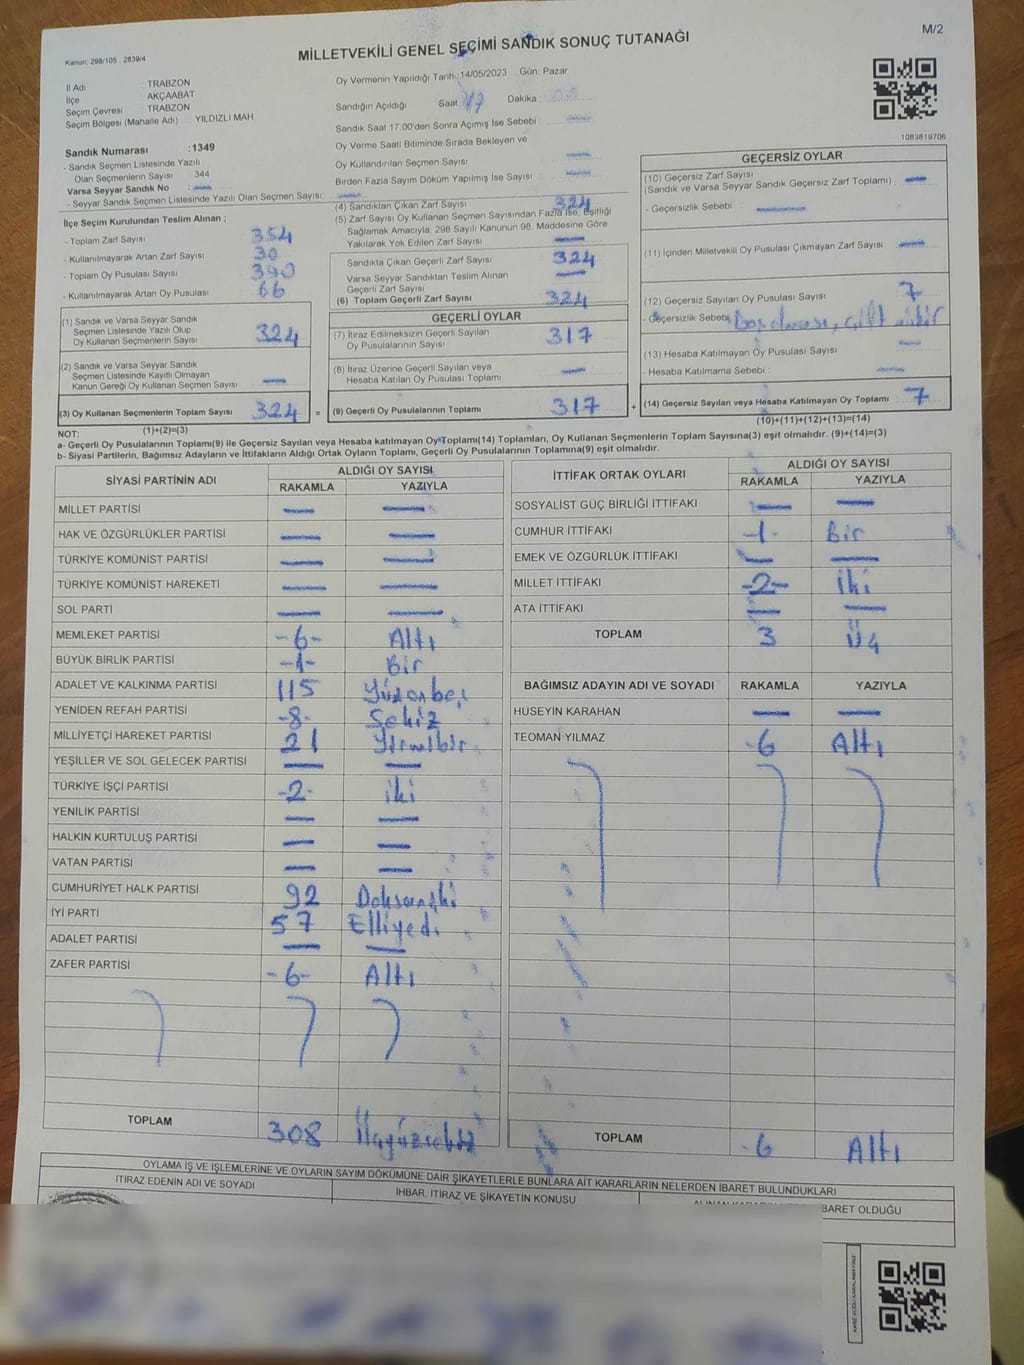 M/2
MİLLETVEKİLİ GENEL SEÇİMİ SANDIK SONUÇ TUTANAĞI
Kanun, 298/105 , 2839/4
İl Adı : TRABZON
İlçe : AKÇAABAT
Seçim Çevresi : TRABZON
Seçim Bölgesi (Mahalle Adı) : YILDIZLI MAH
Oy Vermenin Yapıldığı Tarih : 14/05/2023 Gün: Pazar
Sandığın Açıldığı Saat : 17 Dakika : 00
Sandık Saat 17.00'den Sonra Açılmış İse Sebebi : —
Oy Verme Saati Bitiminde Sırada Bekleyen ve
Oy Kullandırılan Seçmen Sayısı : —
Birden Fazla Sayım Döküm Yapılmış İse Sayısı : —
1083819706
Sandık Numarası : 1349
- Sandık Seçmen Listesinde Yazılı
Olan Seçmenlerin Sayısı : 344
Varsa Seyyar Sandık No : —
- Seyyar Sandık Seçmen Listesinde Yazılı Olan Seçmen Sayısı : —
İlçe Seçim Kurulundan Teslim Alınan ;
- Toplam Zarf Sayısı 354
- Kullanılmayarak Artan Zarf Sayısı 30
- Toplam Oy Pusulası Sayısı 390
- Kullanılmayarak Artan Oy Pusulası 66
(1) Sandık ve Varsa Seyyar Sandık
Seçmen Listesinde Yazılı Olup
Oy Kullanan Seçmenlerin Sayısı 324
(2) Sandık ve Varsa Seyyar Sandık
Seçmen Listesinde Kayıtlı Olmayan
Kanun Gereği Oy Kullanan Seçmen Sayısı —
(3) Oy Kullanan Seçmenlerin Toplam Sayısı 324 =
(1)+(2)=(3)
(4) Sandıktan Çıkan Zarf Sayısı 324
(5) Zarf Sayısı Oy Kullanan Seçmen Sayısından Fazla İse, Eşitliği
Sağlamak Amacıyla; 298 Sayılı Kanunun 98. Maddesine Göre
Yakılarak Yok Edilen Zarf Sayısı —
Sandıkta Çıkan Geçerli Zarf Sayısı 324
Varsa Seyyar Sandıktan Teslim Alınan
Geçerli Zarf Sayısı —
(6) Toplam Geçerli Zarf Sayısı 324
GEÇERLİ OYLAR
(7) İtiraz Edilmeksizin Geçerli Sayılan
Oy Pusulalarının Sayısı 317
(8) İtiraz Üzerine Geçerli Sayılan veya
Hesaba Katılan Oy Pusulası Toplamı —
(9) Geçerli Oy Pusulalarının Toplamı 317 +
GEÇERSİZ OYLAR
(10) Geçersiz Zarf Sayısı
(Sandık ve Varsa Seyyar Sandık Geçersiz Zarf Toplamı) : —
- Geçersizlik Sebebi : —
(11) İçinden Milletvekili Oy Pusulası Çıkmayan Zarf Sayısı : —
(12) Geçersiz Sayılan Oy Pusulası Sayısı : 7
- Geçersizlik Sebebi : Boş olması, çift mühür
(13) Hesaba Katılmayan Oy Pusulası Sayısı : —
- Hesaba Katılmama Sebebi : —
(14) Geçersiz Sayılan veya Hesaba Katılmayan Oy Toplamı : 7
(10)+(11)+(12)+(13)=(14)
NOT:
a- Geçerli Oy Pusulalarının Toplamı(9) ile Geçersiz Sayılan veya Hesaba katılmayan Oy Toplamı(14) Toplamları, Oy Kullanan Seçmenlerin Toplam Sayısına(3) eşit olmalıdır. (9)+(14)=(3)
b- Siyasi Partilerin, Bağımsız Adayların ve İttifakların Aldığı Ortak Oyların Toplamı, Geçerli Oy Pusulalarının Toplamına(9) eşit olmalıdır.
SİYASİ PARTİNİN ADI ALDIĞI OY SAYISI
RAKAMLA YAZIYLA
MİLLET PARTİSİ — —
HAK VE ÖZGÜRLÜKLER PARTİSİ — —
TÜRKİYE KOMÜNİST PARTİSİ — —
TÜRKİYE KOMÜNİST HAREKETİ — —
SOL PARTİ — —
MEMLEKET PARTİSİ -6- Altı
BÜYÜK BİRLİK PARTİSİ -1- Bir
ADALET VE KALKINMA PARTİSİ 115 Yüzonbeş
YENİDEN REFAH PARTİSİ -8- Sekiz
MİLLİYETÇİ HAREKET PARTİSİ 21 Yirmibir
YEŞİLLER VE SOL GELECEK PARTİSİ — —
TÜRKİYE İŞÇİ PARTİSİ -2- iki
YENİLİK PARTİSİ — —
HALKIN KURTULUŞ PARTİSİ — —
VATAN PARTİSİ — —
CUMHURİYET HALK PARTİSİ 92 Doksaniki
İYİ PARTİ 57 Elliyedi
ADALET PARTİSİ — —
ZAFER PARTİSİ -6- Altı
TOPLAM 308 Üçyüzsekiz
İTTİFAK ORTAK OYLARI ALDIĞI OY SAYISI
RAKAMLA YAZIYLA
SOSYALİST GÜÇ BİRLİĞİ İTTİFAKI — —
CUMHUR İTTİFAKI -1- Bir
EMEK VE ÖZGÜRLÜK İTTİFAKI — —
MİLLET İTTİFAKI -2- iki
ATA İTTİFAKI — —
TOPLAM 3 Üç
BAĞIMSIZ ADAYIN ADI VE SOYADI RAKAMLA YAZIYLA
HÜSEYİN KARAHAN — —
TEOMAN YILMAZ -6 Altı
TOPLAM -6 Altı
OYLAMA İŞ VE İŞLEMLERİNE VE OYLARIN SAYIM DÖKÜMÜNE DAİR ŞİKAYETLERLE BUNLARA AİT KARARLARIN NELERDEN İBARET BULUNDUKLARI
İTİRAZ EDENİN ADI VE SOYADI
İHBAR, İTİRAZ VE ŞİKAYETİN KONUSU
BARET OLDUĞU
KARE KODU KARALAMAYINIZ